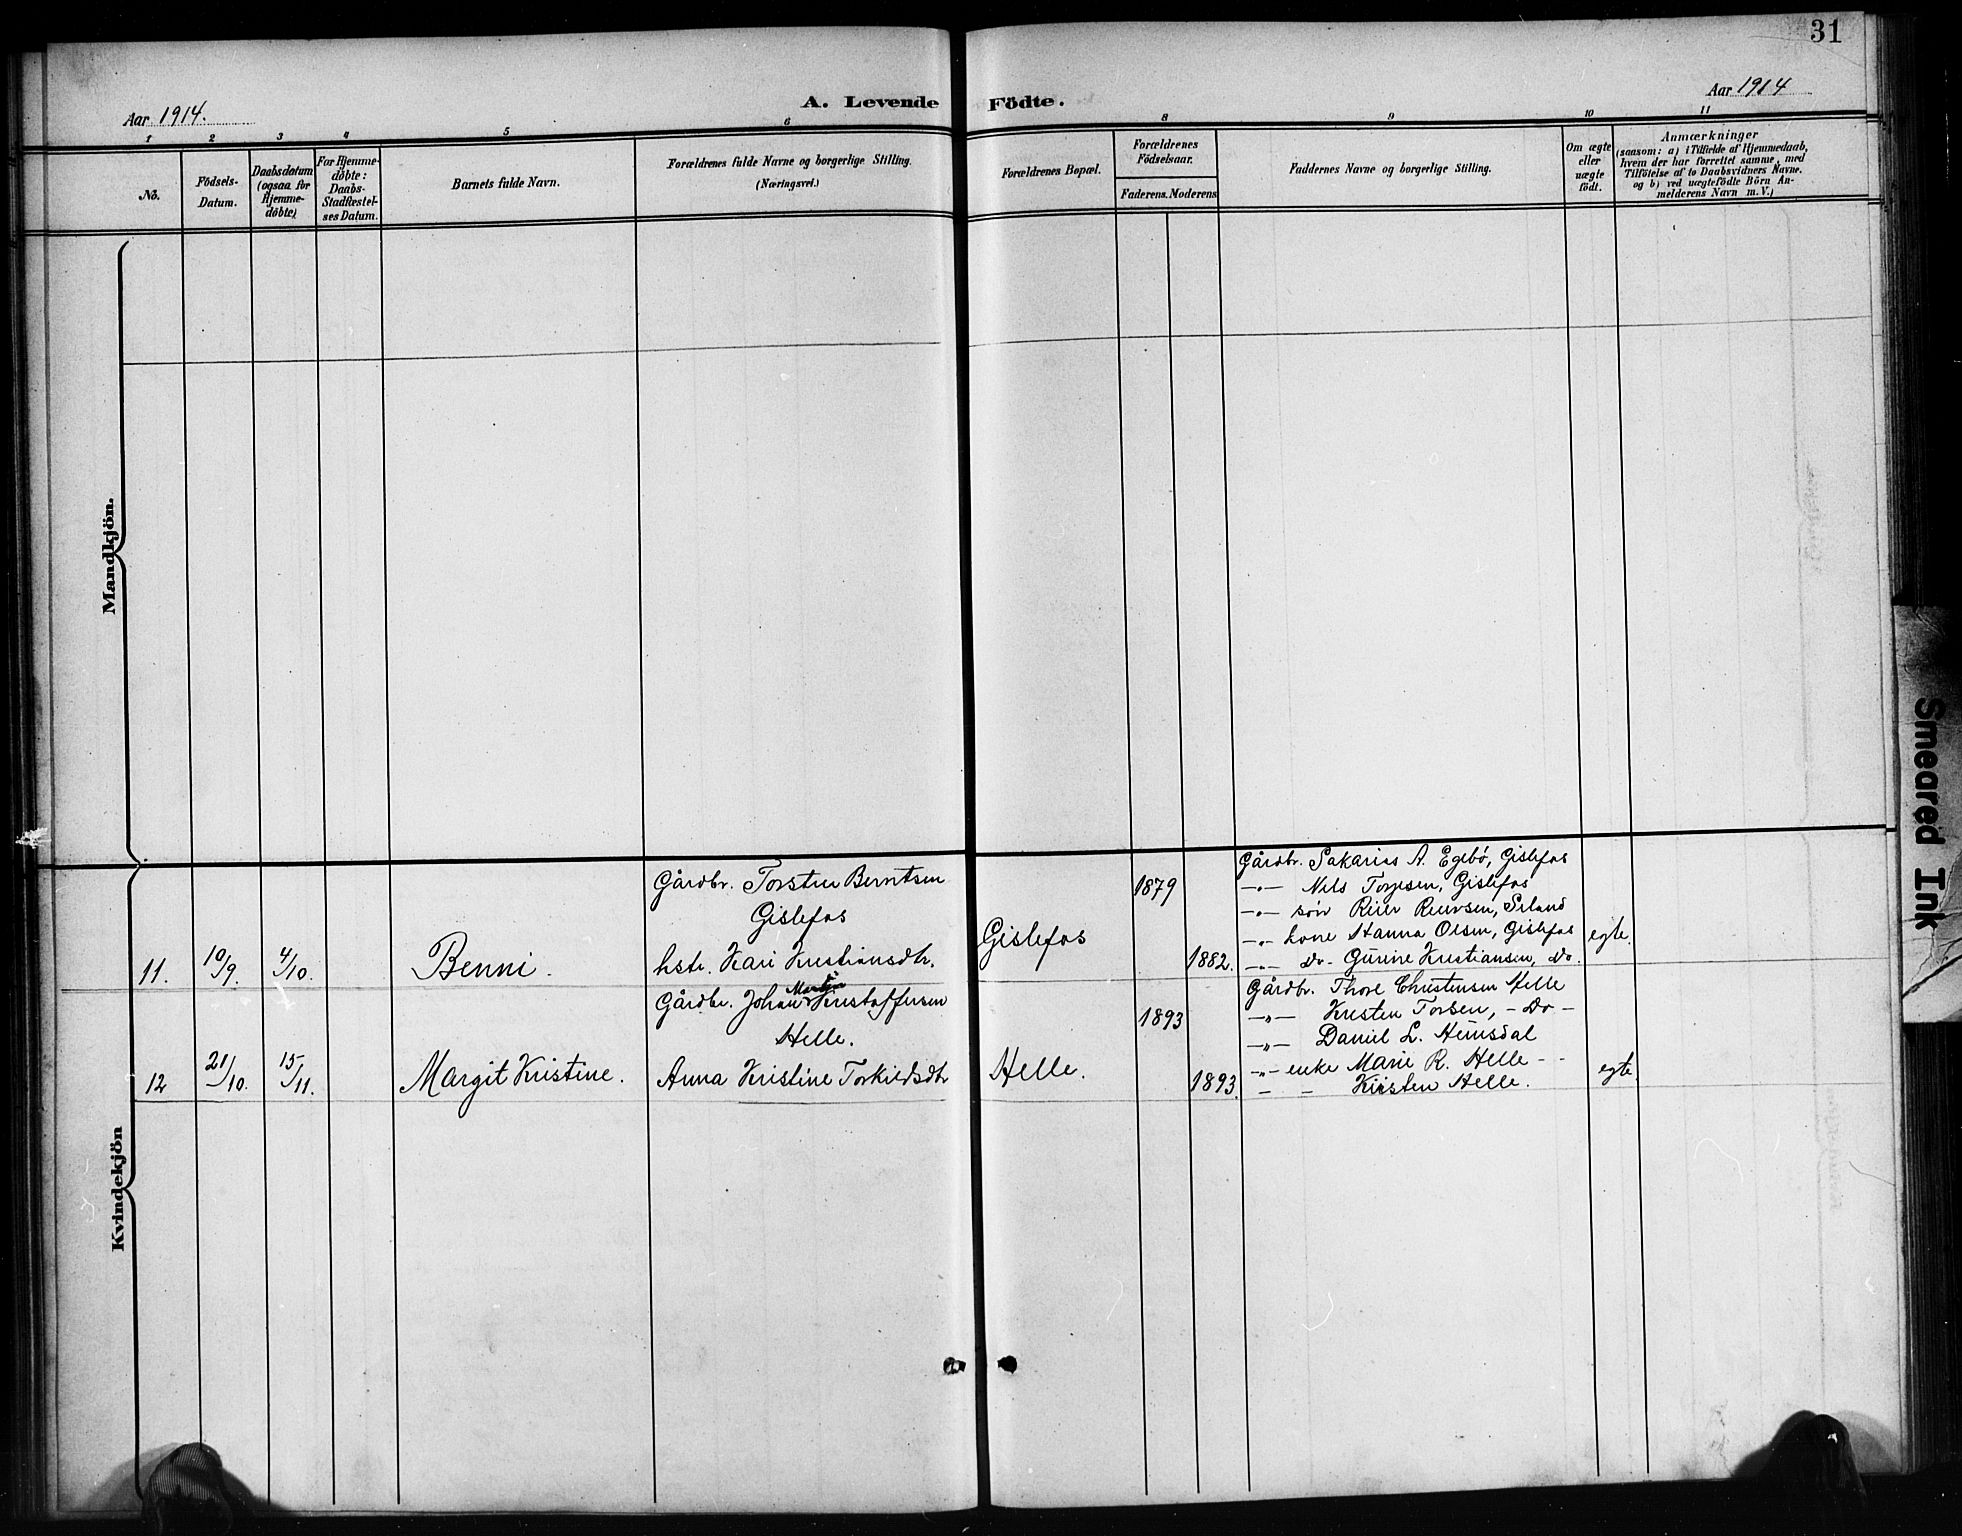 31
Aar 1914.
A. Levende Födte.
Aar 1914
1 2 3 4 5 6 8 9 10 11
No.
Födsels-
Datum.
Daabsdatum
(ogsaa for
Hjemme-
döbte)
For Hjemme-
döbte:
Daabs-
Stadfæstel-
ses Datum.
Barnets fulde Navn.
Forældrenes fulde Navne og borgerlige Stilling.
(Næringsvei.)
Forældrenes Bopæl.
Forældrenes
Födselsaar.
Faderens. Moderens
Faddernes Navne og borgerlige Stilling.
Om ægte
eller
uægte
födt.
Anmærkninger
(saasom: a) i Tilfælde af Hjemmedaab,
hvem der har forrettet samme, med
Tilföielse af to Daabsvidners Navne.
og b) ved uægtefödte Börn An-
melderens Navn m.V.)
Mandkjön.
Kvindekjön
11.
10/9.
4/10.
Benni.
Gårdbr. Torsten Berntsen
Gislefos
hstr. Kari Kristiansdtr.
Gislefos
1879
1882.
Gårdbr. Sakarias A. Egebö, Gislefos
—„— Nils Torjesen, Gislefos
—„— sön Reier Reiersen, Seland
—„— kone Hanna Olsen, Gislefos
—„— Do- Gurine Kristiansen, Do.
egte.
12
21/10.
15/11.
Margit Kristine.
Gårdbr. Johan Martin Kristoffersen
Helle.
Anna Kristine Torkildsdtr
Helle.
1893
1893.
Gårdbr. Thore Christensen Helle
—„— Kristen Torsen, - Do -
—„— Daniel L. Heimsdal
—„— enke Marie R. Helle - -
— — Kristen Helle.
egte.
Smeared Ink